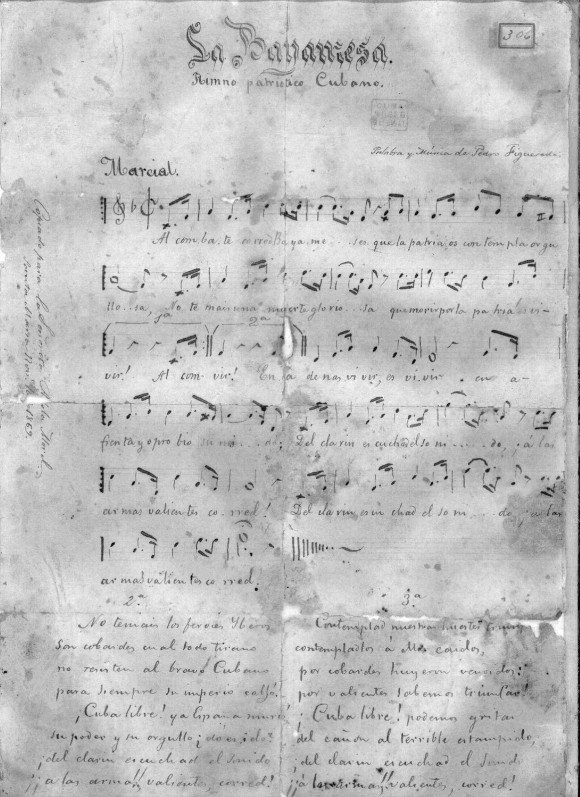 306
La Bayamesa.
Himno patriótico Cubano.
Palabra y Música de Pedro Figueredo.
Marcial.
Al com.ba.te corred Ba ya me...ses que la patria, os con tem pla or gu
llo..sa, No te mais una muerte glorio...sa que morir por la pa tria es vi-
1ª 2ª
vir! Al com vir! En ca de nas vi vir, es vi.vir . en a-
frenta y opro bio su mi...do; Del clarin es cuchad el so ni.....do, .a las
armas valientes co..rred! Del clarin, es cu chad el so ni...do, .a las
armas valientes co rred.
2ª
No temais los feroces Yberos
Son cobardes cual todo tirano
no resisten al bravo Cubano
para siempre su imperio cayó!
¡Cuba libre! ya España murió
su poder y su orgullo ¿do es ido?
¡del clarin escuchad el sonido
¡¡a las armas!! valientes, corred!
3ª
Contemplad nuestras huestes triunf
contempladlos a ellos caidos,
por cobardes huyeron vencidos:
por valientes sabemos triunfar!
¡Cuba libre! podemos gritar
del cañon al terrible estampido,
¡del clarin escuchad el sonido
¡¡a las armas!! valientes, corred!
Copiado para la Señorita
1869.